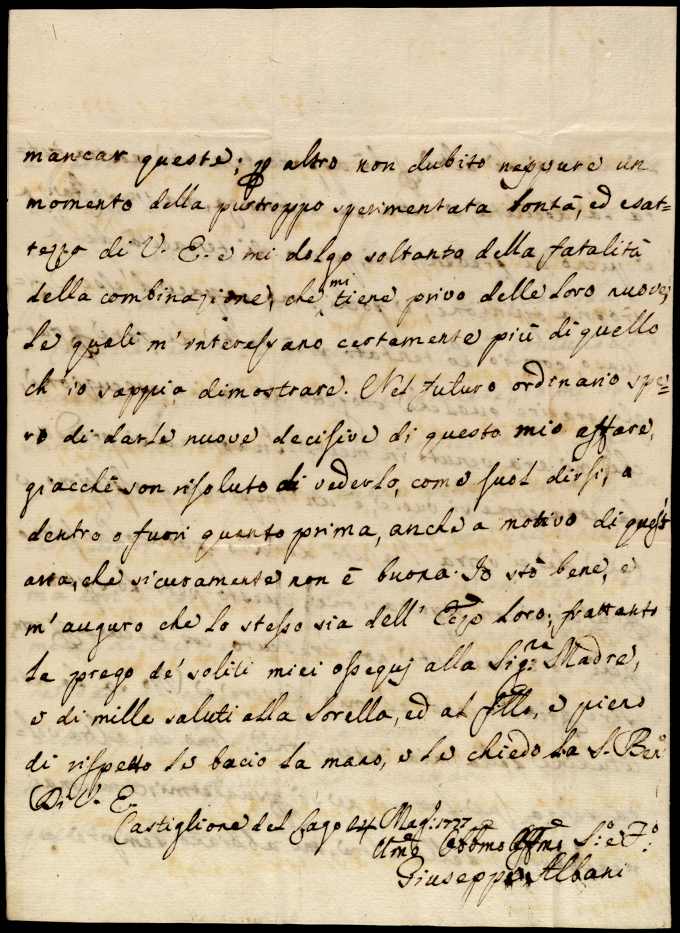 mancar queste; p altro non dubito neppure un
momento della purtroppo sperimentata bontà, ed esat=
tezza di V. E. e mi dolgo soltanto della fatalità
della combinazione, che mi tiene privo delle loro nuove,
le quali m'interessano certamente più di quello
ch'io sappia dimostrare. Nel futuro ordinario spe=
ro di darle nuove decisive di questo mio affare,
giacchè son risoluto di vederlo, come suol dirsi, a
dentro o fuori quanto prima, anche a motivo di quest
aria, che sicuramente non è buona. Io stò bene, e
m'auguro che lo stesso sia dell' Ecze loro; frattanto
la prego de' soliti miei ossequj alla Sig.ra Madre,
e di mille saluti alla Sorella, ed al fllo, e pieno
di rispetto le bacio la mano, e le chiedo la S. Ben.
Di V. E.
Castiglione del Lago 24 Mag.o 1777
Umo Obbmo Affmo S.o e F.o
Giuseppe Albani